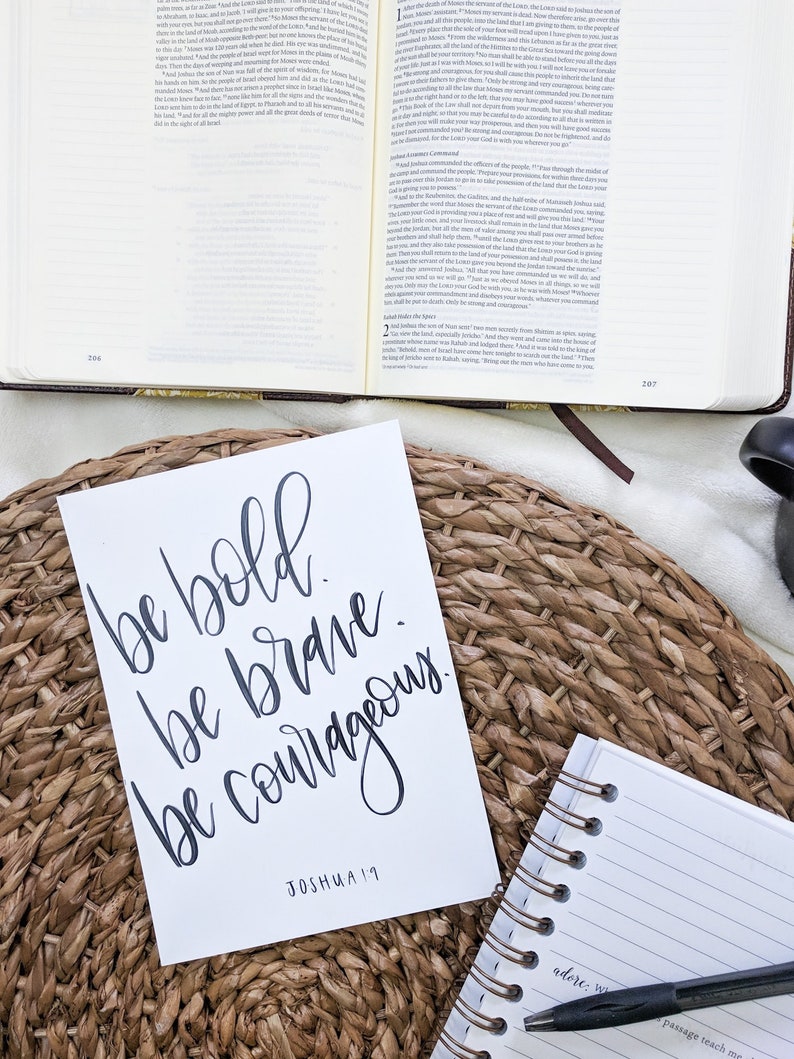 palm trees, as far as Zoar. 4And the LORD said to him, "This is the land of which I
to Abraham, to Isaac, and to Jacob, 'I will give it to your offspring.' I have let you see it
with your eyes, but you shall not go over there." 5So Moses the servant of the LORD died
there in the land of Moab, according to the word of the LORD, 6and he buried him in the
valley in the land of Moab opposite Beth-peor; but no one knows the place of his burial
to this day. 7Moses was 120 years old when he died. His eye was undimmed, and his
vigor unabated. 8And the people of Israel wept for Moses in the plains of Moab thirty
days. Then the days of weeping and mourning for Moses were ended.
9And Joshua the son of Nun was full of the spirit of wisdom, for Moses had laid
his hands on him. So the people of Israel obeyed him and did as the LORD had com-
manded Moses. 10And there has not arisen a prophet since in Israel like Moses, whom
the LORD knew face to face, 11none like him for all the signs and the wonders that the
LORD sent him to do in the land of Egypt, to Pharaoh and to all his servants and to all
his land, 12and for all the mighty power and all the great deeds of terror that Moses
did in the sight of all Israel.
206
1 After the death of Moses the servant of the LORD, the LORD said to Joshua the son of
Nun, Moses' assistant, 2"Moses my servant is dead. Now therefore arise, go over this
Jordan, you and all this people, into the land that I am giving to them, to the people
of Israel. 3Every place that the sole of your foot will tread upon I have given to you, just as
I promised to Moses. 4From the wilderness and this Lebanon as far as the great river,
the river Euphrates, all the land of the Hittites to the Great Sea toward the going down
of the sun shall be your territory. 5No man shall be able to stand before you all the days
of your life. Just as I was with Moses, so I will be with you. I will not leave you or forsake
you. 6Be strong and courageous, for you shall cause this people to inherit the land that
I swore to their fathers to give them. 7Only be strong and very courageous, being care-
ful to do according to all the law that Moses my servant commanded you. Do not turn
from it to the right hand or to the left, that you may have good success wherever you
go. 8This Book of the Law shall not depart from your mouth, but you shall meditate
on it day and night, so that you may be careful to do according to all that is written in
it. For then you will make your way prosperous, and then you will have good success.
9Have I not commanded you? Be strong and courageous. Do not be frightened, and do
not be dismayed, for the LORD your God is with you wherever you go."
Joshua Assumes Command
10And Joshua commanded the officers of the people, 11"Pass through the midst of
the camp and command the people, 'Prepare your provisions, for within three days you
are to pass over this Jordan to go in to take possession of the land that the LORD your
God is giving you to possess.'"
12And to the Reubenites, the Gadites, and the half-tribe of Manasseh Joshua said,
13"Remember the word that Moses the servant of the LORD commanded you, saying,
'The LORD your God is providing you a place of rest and will give you this land.' 14Your
wives, your little ones, and your livestock shall remain in the land that Moses gave you
beyond the Jordan, but all the men of valor among you shall pass over armed before
your brothers and shall help them, 15until the LORD gives rest to your brothers as he
has to you, and they also take possession of the land that the LORD your God is giving
them. Then you shall return to the land of your possession and shall possess it, the land
that Moses the servant of the LORD gave you beyond the Jordan toward the sunrise."
16And they answered Joshua, "All that you have commanded us we will do, and
wherever you send us we will go. 17Just as we obeyed Moses in all things, so we will
obey you. Only may the LORD your God be with you, as he was with Moses! 18Whoever
rebels against your commandment and disobeys your words, whatever you command
him, shall be put to death. Only be strong and courageous."
Rahab Hides the Spies
2 And Joshua the son of Nun sent two men secretly from Shittim as spies, saying,
"Go, view the land, especially Jericho." And they went and came into the house of
a prostitute whose name was Rahab and lodged there. 2And it was told to the king of
Jericho, "Behold, men of Israel have come here tonight to search out the land." 3Then
the king of Jericho sent to Rahab, saying, "Bring out the men who have come to you,
207
be bold.
be brave.
be courageous.
JOSHUA 1:9
adore:
passage teach me